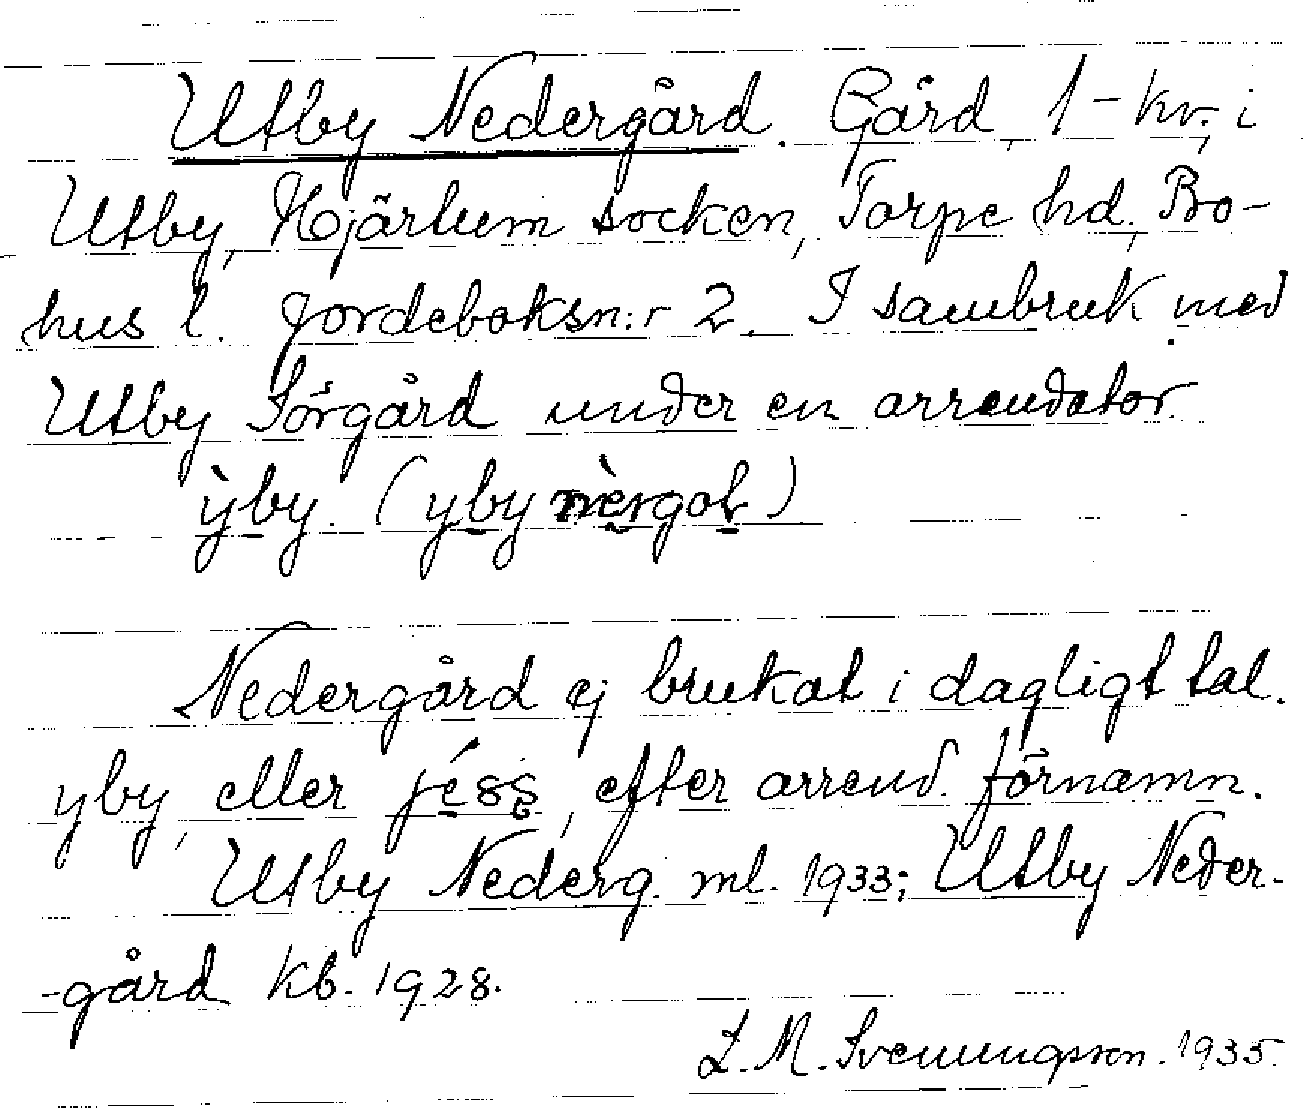 Utby Nedergård. Gård, 1-kv., i
Utby, Hjärtum socken, Torpe hd., Bo-
hus l. Jordeboksn:r 2. I sambruk med
Utby Sörgård under en arrendator.
ỳby. (yby nèrgoḷ)
Nedergård ej brukat i dagligt tal.
yby, eller jéss, efter arrend. förnamn.
Utby Nederg. ml. 1933; Utby Neder-
-gård kb. 1928.
L. M. Svenungsson. 1935.